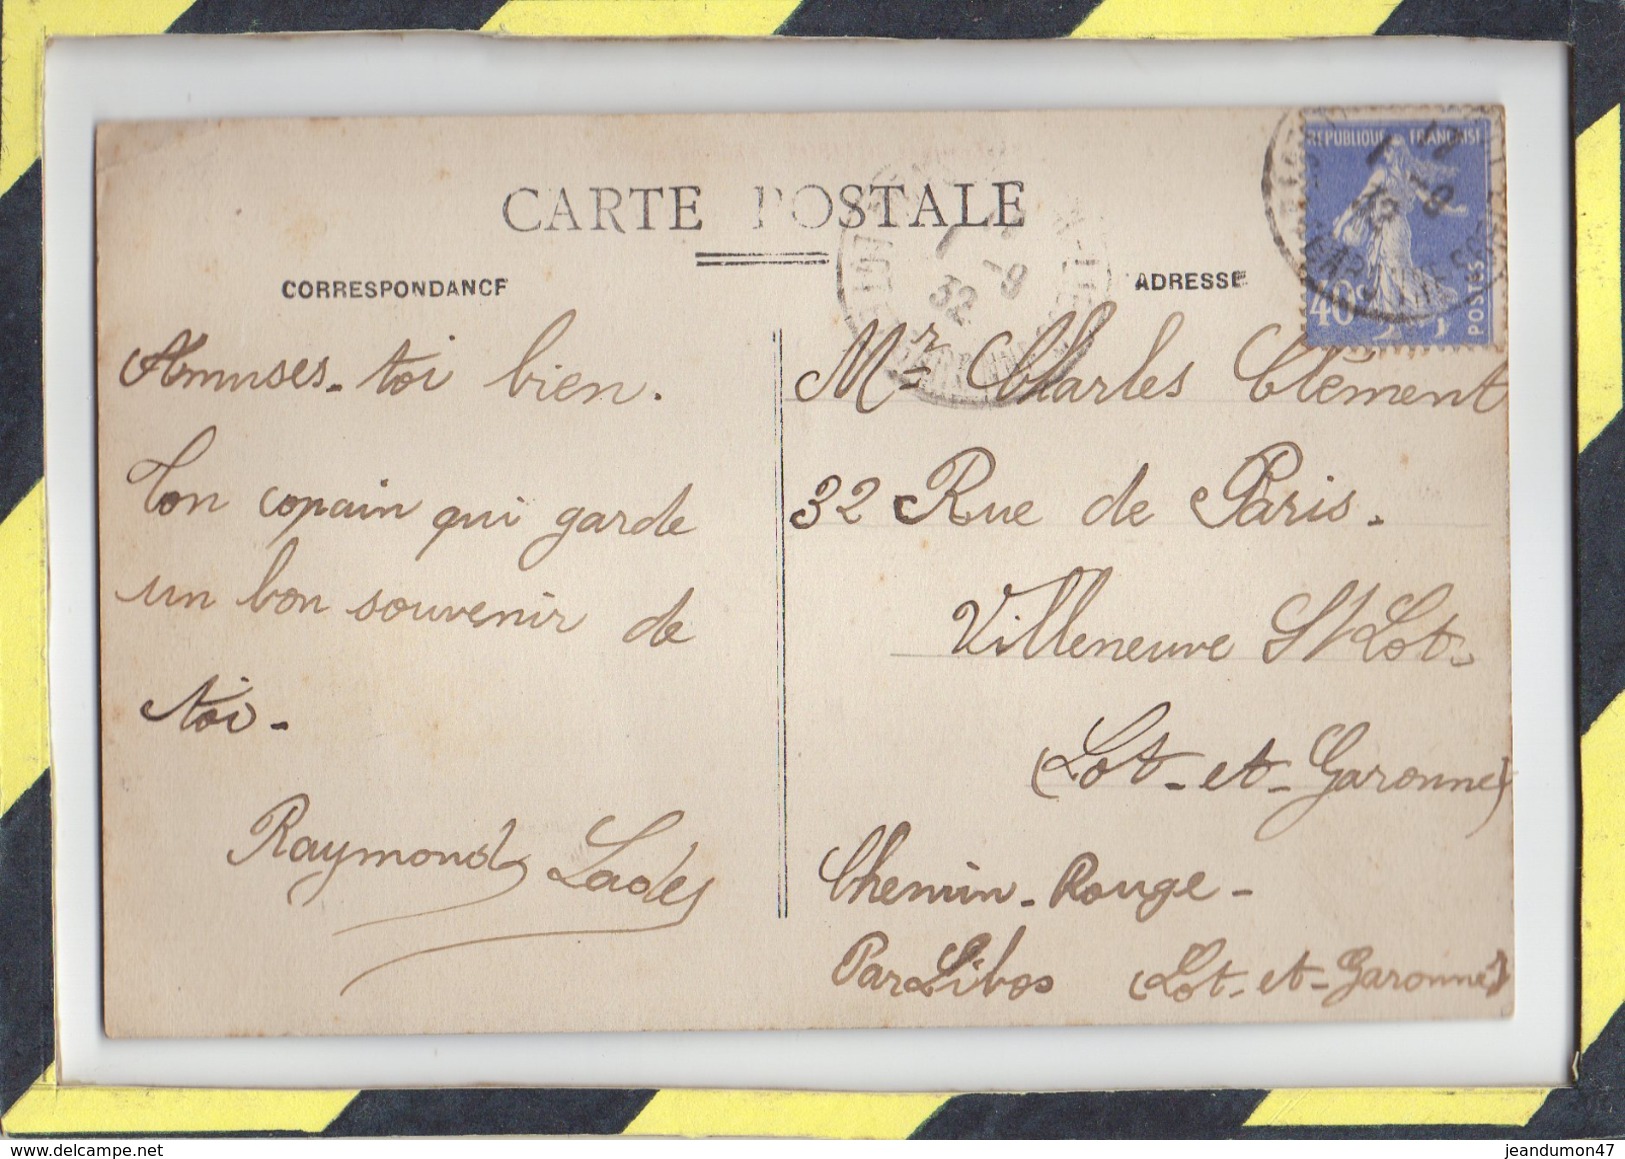 CARTE POSTALE
CORRESPONDANCE
Amuses-toi bien.
Ton copain qui garde
un bon souvenir de
toi-
Raymond Lades
ADRESSE
REPUBLIQUE FRANÇAISE
40c
POSTES
LOT
32
-9
Mr Charles Clément
32 Rue de Paris.
Villeneuve S/Lot.
(Lot-et-Garonne)
Chemin-Rouge-
Par Libos (Lot-et-Garonne)
delcampe.net
jeandumon47